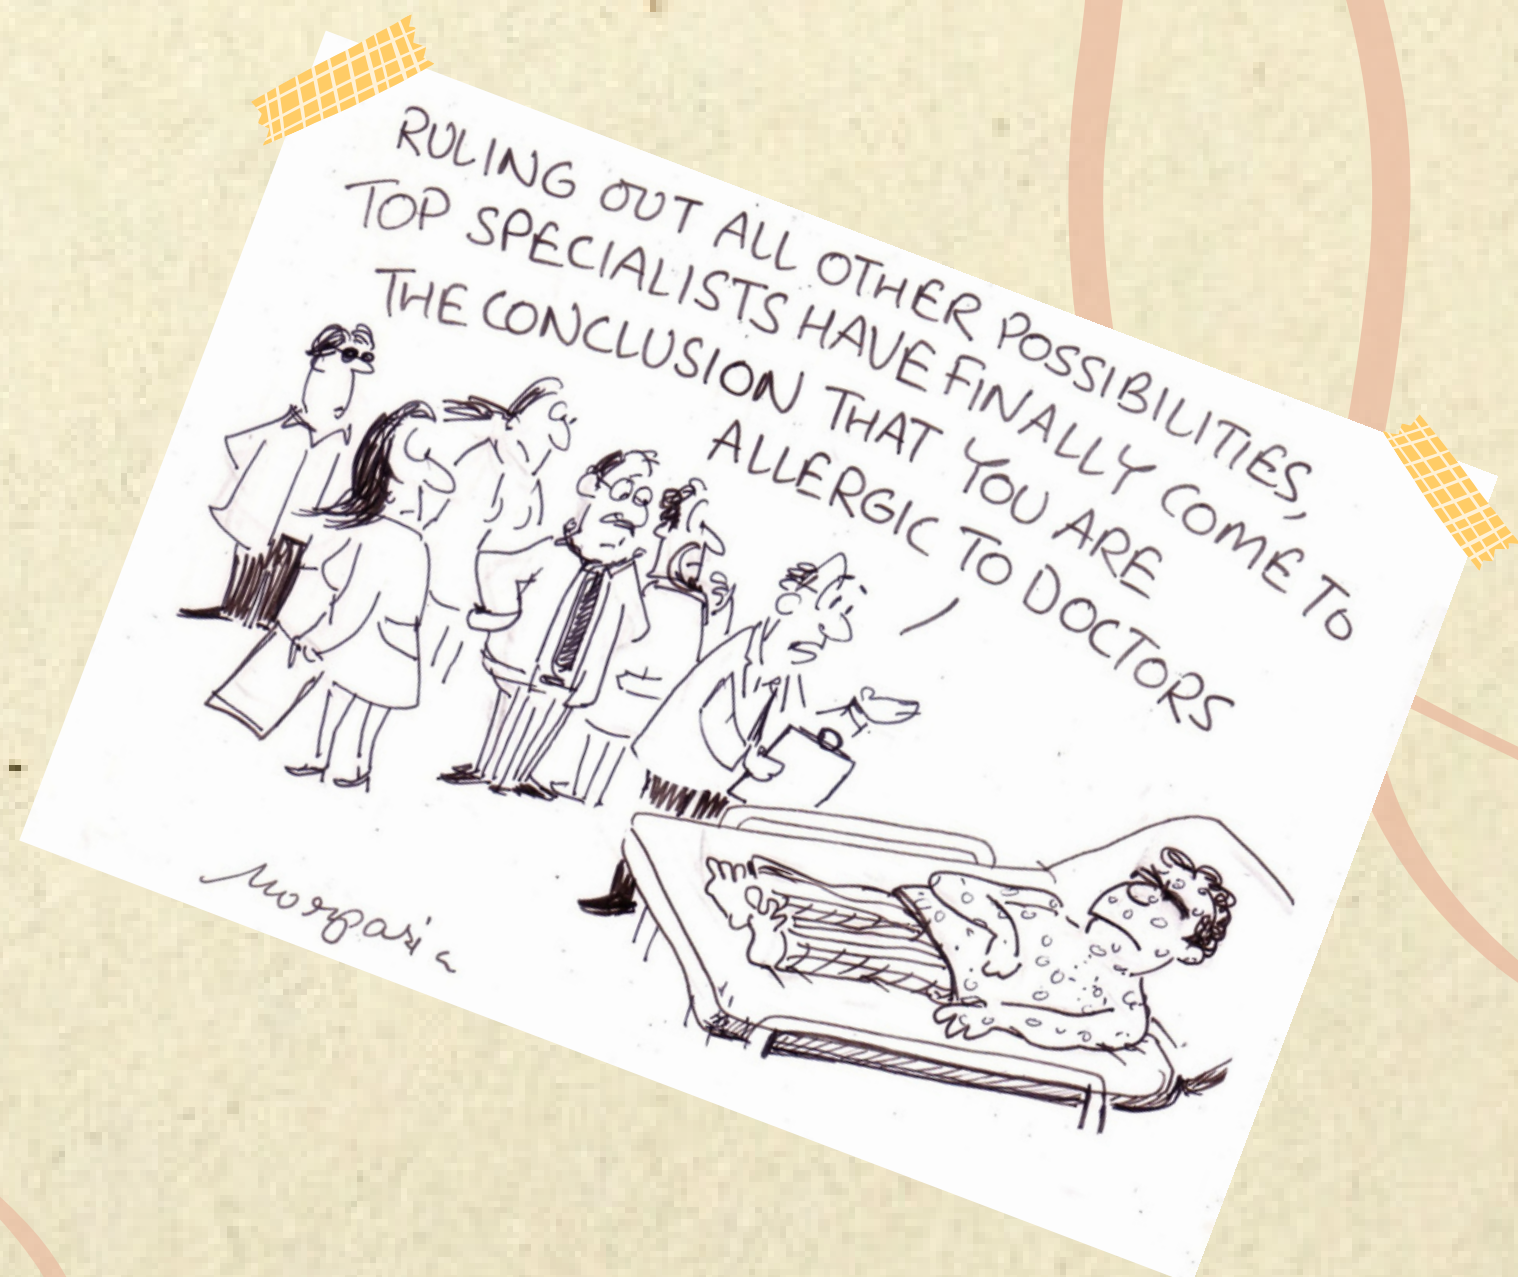 RULING OUT ALL OTHER POSSIBILITIES,
TOP SPECIALISTS HAVE FINALLY COME TO
THE CONCLUSION THAT YOU ARE
ALLERGIC TO DOCTORS
Morparia